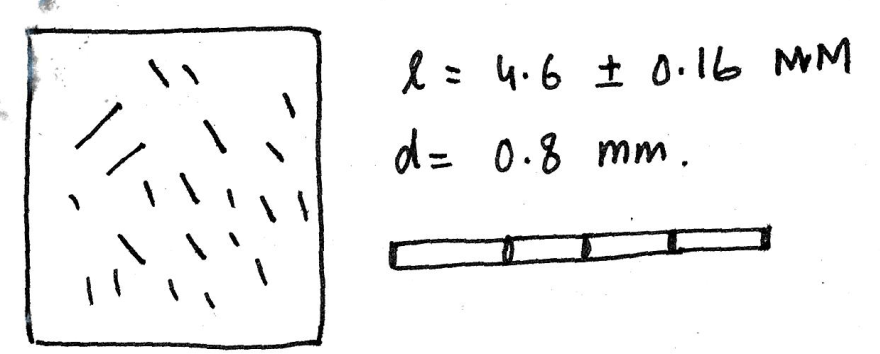 l = 4.6 ± 0.16 MM
d = 0.8 mm.